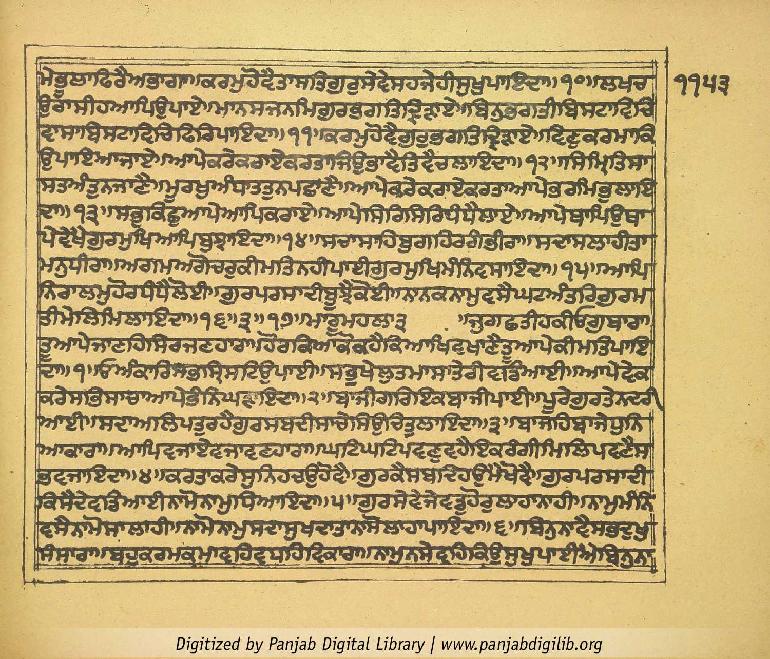 ਮੇਭੁਲਾਫਿਰੈਅਭਾਗਾ॥ਕਰਮੁਹੋਵੈਤਾਸਤਿਗੁਰੁਸੇਵੇਸਹਜੇਹੀਸੁਖੁਪਾਇਦਾ॥੧੦॥ਲਖਚ ੧੧੫੩
ਉਰਾਸੀਹਆਪਿਉਪਾਏ॥ਮਾਨਸਜਨਮਿਗੁਰਭਗਤਿਦ੍ਰਿੜਾਏ॥ਬਿਨੁਭਗਤੀਬਿਸਟਾਵਿਚਿ
ਵਾਸਾਬਿਸਟਾਵਿਚਿਫਿਰਿਪਾਇਦਾ॥੧੧॥ਕਰਮੁਹੋਵੈਗੁਰੁਭਗਤਿਦ੍ਰਿੜਾਏ॥ਵਿਣੁਕਰਮਾਕਿ
ਉਪਾਇਆਜਾਏ॥ਆਪੇਕਰੇਕਰਾਏਕਰਤਾਜਿਉਭਾਵੈਤਿਵੈਚਲਾਇਦਾ॥੧੨॥ਸਿਮ੍ਰਿਤਿਸਾ
ਸਤਅੰਤੁਨਜਾਣੈ॥ਮੂਰਖੁਅੰਧਾਤਤੁਨਪਛਾਣੈ॥ਆਪੇਕਰੇਕਰਾਏਕਰਤਾਆਪੇਭਰਮਿਭੁਲਾਇ
ਦਾ॥੧੩॥ਸਭੁਕਿਛੁਆਪੇਆਪਿਕਰਾਏ॥ਆਪੇਸਿਰਿਸਿਰਿਧੰਧੈਲਾਏ॥ਆਪੇਥਾਪਿਉਥਾ
ਪੇਵੇਖੈਗੁਰਮੁਖਿਆਪਿਬੁਝਾਇਦਾ॥੧੪॥ਸਚਾਸਾਹਿਬੁਗਹਿਰਗੰਭੀਰਾ॥ਸਦਾਸਲਾਹੀਤਾ
ਮਨੁਧੀਰਾ॥ਅਗਮਅਗੋਚਰੁਕੀਮਤਿਨਹੀਪਾਈਗੁਰਮੁਖਿਮੰਨਿਵਸਾਇਦਾ॥੧੫॥ਆਪਿ
ਨਿਰਾਲਮੁਹੋਰਧੰਧੈਲੋਈ॥ਗੁਰਪਰਸਾਦੀਬੂਝੈਕੋਈ॥ਨਾਨਕਨਾਮੁਵਸੈਘਟਅੰਤਰਿਗੁਰਮ
ਤੀਮੇਲਿਮਿਲਾਇਦਾ॥੧੬॥੩॥੧੭॥ਮਾਰੂਮਹਲਾ੩ ॥ਜੁਗਛਤੀਹਕੀਓਗੁਬਾਰਾ
ਤੂਆਪੇਜਾਣਹਿਸਿਰਜਣਹਾਰਾ॥ਹੋਰਕਿਆਕੋਕਹੈਕਿਆਖਿਵਖਾਣੈਤੂਆਪੇਕੀਮਤਿਪਾਇ
ਦਾ॥੧॥ਓਅੰਕਾਰਿਸਭਸ੍ਰਿਸਟਿਉਪਾਈ॥ਸਭੁਖੇਲੁਤਮਾਸਾਤੇਰੀਵਡਿਆਈ॥ਆਪੇਵੇਕ
ਕਰੇਸਭਿਸਾਚਾਆਪੇਭੰਨਿਘੜਾਇਦਾ॥੨॥ਬਾਜੀਗਰਿਇਕਬਾਜੀਪਾਈ॥ਪੂਰੇਗੁਰਤੇਨਦਰੀ
ਆਈ॥ਸਦਾਅਲਿਪਤੁਰਹੈਗੁਰਸਬਦੀਸਾਚੇਸਿਉਚਿਤੁਲਾਇਦਾ॥੩॥ਬਾਜਹਿਬਾਜੇਧੁਨਿ
ਆਕਾਰਾ॥ਆਪਿਵਜਾਏਵਜਾਵਣਹਾਰਾ॥ਘਟਿਘਟਿਪਵਣੁਵਹੈਇਕਰੰਗੀਮਿਲਿਪਵਣੈਸ
ਭਵਜਾਇਦਾ॥੪॥ਕਰਤਾਕਰੇਸੁਨਿਹਚਉਹੋਵੈ॥ਗੁਰਕੈਸਬਦਿਹਉਮੈਖੋਵੈ॥ਗੁਰਪਰਸਾਦੀ
ਕਿਸੈਦੇਵਡਿਆਈਨਾਮੋਨਾਮੁਧਿਆਇਦਾ॥੫॥ਗੁਰਸੇਵੇਜੇਵਡੁਹੋਰੁਲਾਹਾਨਾਹੀ॥ਨਾਮੁਮੰਨਿ
ਵਸੈਨਾਮੋਸਾਲਾਹੀ॥ਨਾਮੋਨਾਮੁਸਦਾਸੁਖਦਾਤਾਨਾਮੋਲਾਹਾਪਾਇਦਾ॥੬॥ਬਿਨੁਨਾਵੈਸਭਦੁਖੁ
ਸੰਸਾਰਾ॥ਬਹੁਕਰਮਕਮਾਵਹਿਵਧਹਿਵਿਕਾਰਾ॥ਨਾਮੁਨਸੇਵਹਿਕਿਉਸੁਖੁਪਾਈਐਬਿਨੁਨਾ
Digitized by Panjab Digital Library | www.panjabdigilib.org